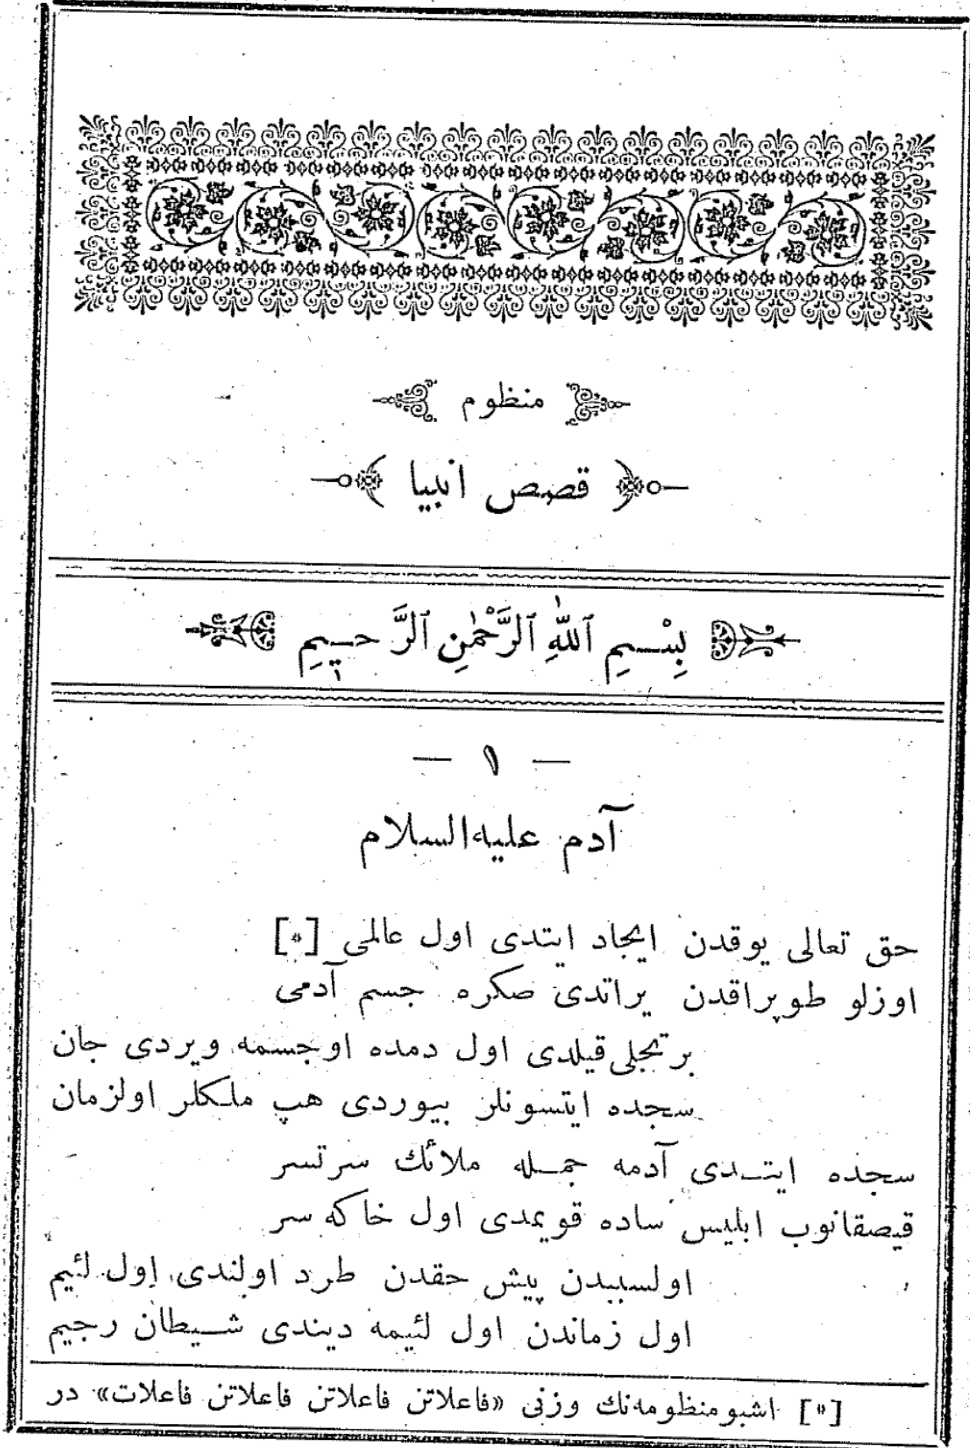 منظوم
قصص انبيا
بِسْــمِ ٱللّٰهِ ٱلرَّحْمٰنِ ٱلرَّحــيمِ
— ١ —
آدم عليه‌السلام
حق تعالى يوقدن ايجاد ايتدى اول عالمى [*]
اوزلو طوپراقدن يراتدى صكره جسم آدمى
بر تجلى قيلدى اول دمده اوجسمه ويردى جان
سجده ايتسونلر بيوردى هپ ملكلر اولزمان
سجده ايتــدى آدمه جمــله ملائك سرتسر
قيصقانوب ابليس ساده قويمدى اول خاكه سر
اولسببدن پيش حقدن طرد اولندى اول لئيم
اول زماندن اول لئيمه ديندى شــيطان رجيم
[*] اشبو منظومه‌نك وزنى «فاعلاتن فاعلاتن فاعلاتن فاعلات» در